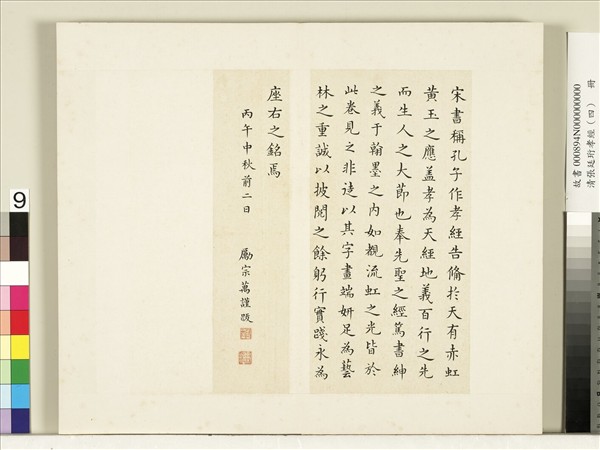 宋書稱孔子作孝經告備於天有赤虹
黃玉之應蓋孝為天經地義百行之先
而生人之大節也奉先聖之經篤書紳
之義于翰墨之內如觀流虹之光皆於
此卷見之非徒以其字畫端妍足為藝
林之重誠以披閱之餘躬行實踐永為
座右之銘焉
丙午中秋前二日
勵宗萬謹跋
故書 000894N000000000
清張廷珩孝經（四） 冊
9